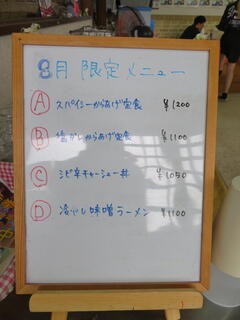 8月 限定メニュー
Ⓐ スパイシーからあげ定食 ¥1200
Ⓑ 塩だれからあげ定食 ¥1100
Ⓒ シビ辛チャーシュー丼 ¥1050
Ⓓ 冷やし味噌ラーメン ¥1100